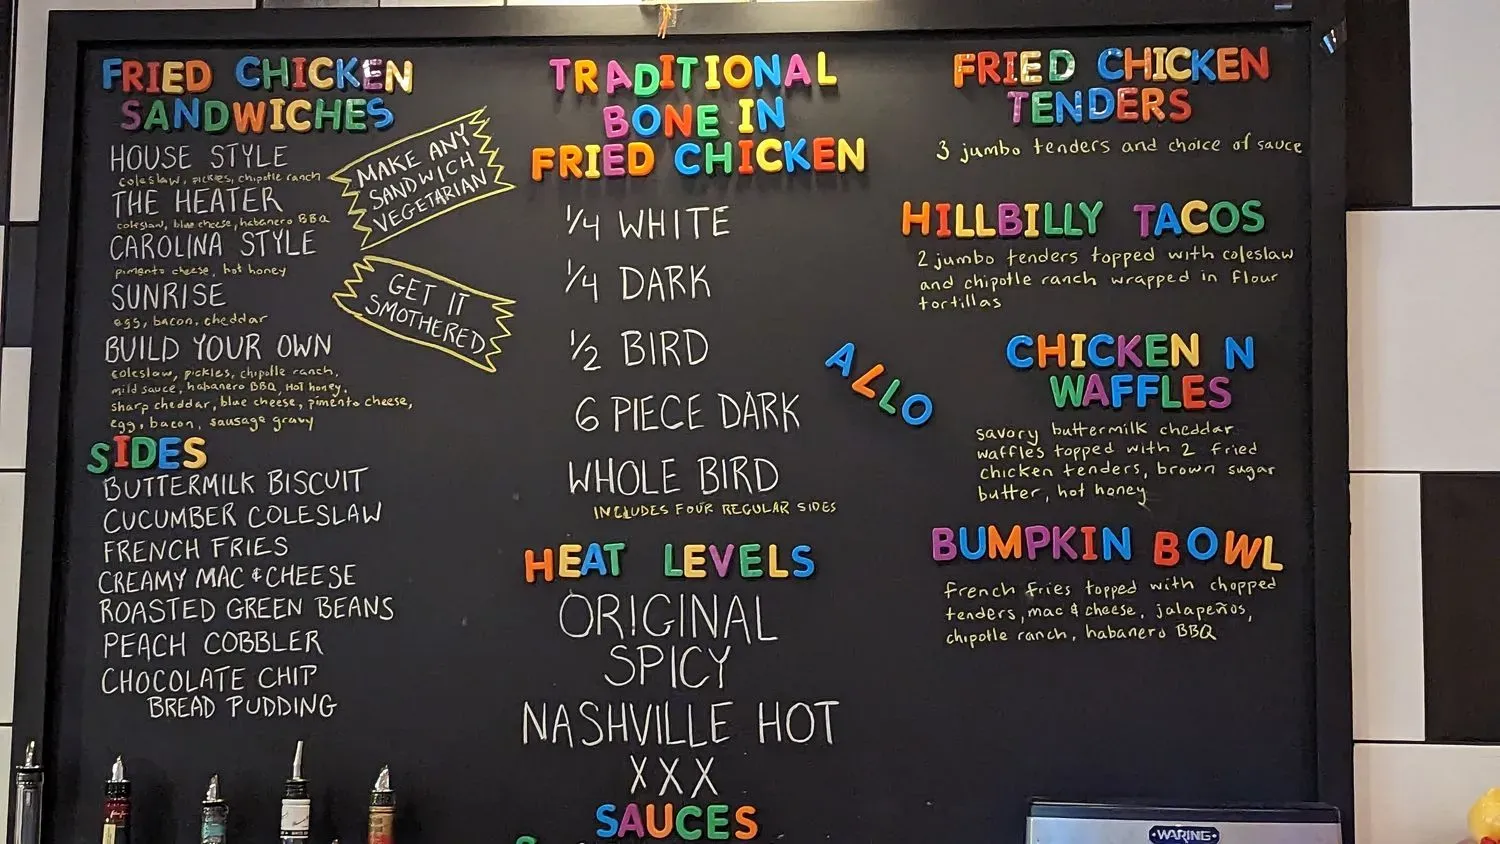 FRIED CHICKEN
SANDWICHES
HOUSE STYLE
coleslaw, pickles, chipotle ranch
THE HEATER
coleslaw, blue cheese, habanero BBQ
CAROLINA STYLE
pimento cheese, hot honey
SUNRISE
egg, bacon, cheddar
BUILD YOUR OWN
coleslaw, pickles, chipotle ranch,
mild sauce, habanero BBQ, Hot honey,
sharp cheddar, blue cheese, pimento cheese,
egg, bacon, sausage gravy
MAKE ANY
SANDWICH
VEGETARIAN
GET IT
SMOTHERED
SIDES
BUTTERMILK BISCUIT
CUCUMBER COLESLAW
FRENCH FRIES
CREAMY MAC & CHEESE
ROASTED GREEN BEANS
PEACH COBBLER
CHOCOLATE CHIP
BREAD PUDDING
TRADITIONAL
BONE IN
FRIED CHICKEN
1/4 WHITE
1/4 DARK
1/2 BIRD
6 PIECE DARK
WHOLE BIRD
INCLUDES FOUR REGULAR SIDES
HEAT LEVELS
OR!GINAL
SPICY
NASHVILLE HOT
XXX
SAUCES
ALLO
FRIED CHICKEN
TENDERS
3 jumbo tenders and choice of sauce
HILLBILLY TACOS
2 jumbo tenders topped with coleslaw
and chipotle ranch wrapped in flour
tortillas
CHICKEN N
WAFFLES
savory buttermilk cheddar
waffles topped with 2 fried
chicken tenders, brown sugar
butter, hot honey
BUMPKIN BOWL
french fries topped with chopped
tenders, mac & cheese, jalapeños,
chipotle ranch, habanero BBQ
WARING